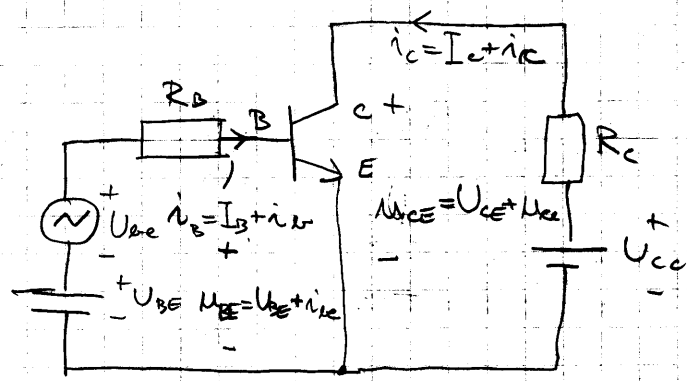 i_C = I_C + i_c
R_B
B
C +
E
R_C
+
U_be
-
i_B = I_B + i_b
+
u_CE = U_CE + u_ce
-
+
U_CC
-
+
U_BE
-
u_BE = U_BE + i_be
-